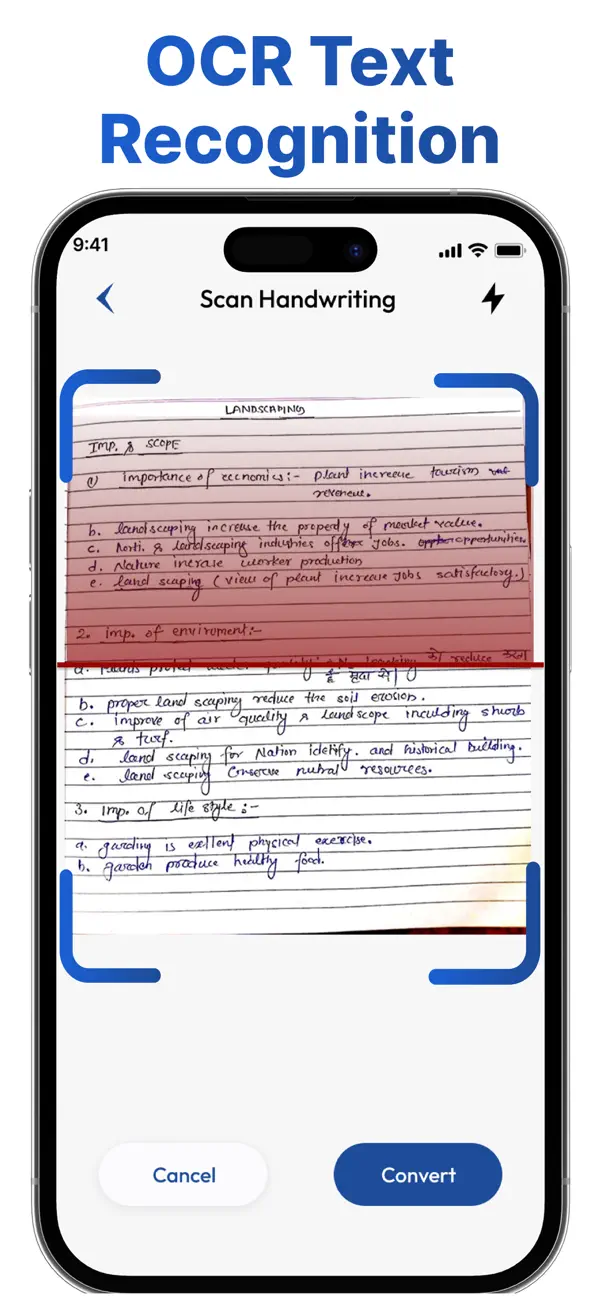 OCR Text
Recognition
9:41
Scan Handwriting
LANDSCAPING
IMP. & SCOPE
importance of ecenomics:- plant increeue tourism
reveneue.
b. landscaping increuse the property of meorket value.
c. horti. & landscaping industries offer jobs. opportunities.
d. Nature incrase worker production
e. land scaping (view of plant increase jobs satisfactory.)
2. imp. of enviroment:-
a. को reduce करता
है हवा से|
b. proper land scaping reduce the soil erosion.
c. improve of air quality & landscope inculding shurb
& turf.
d. land scaping for Nation idetify. and historical building.
e. land scaping Conserve nutral resources.
3. Imp. of life style :-
a. garding is exllent physical exercise.
b. garden produce healthy food.
Cancel
Convert